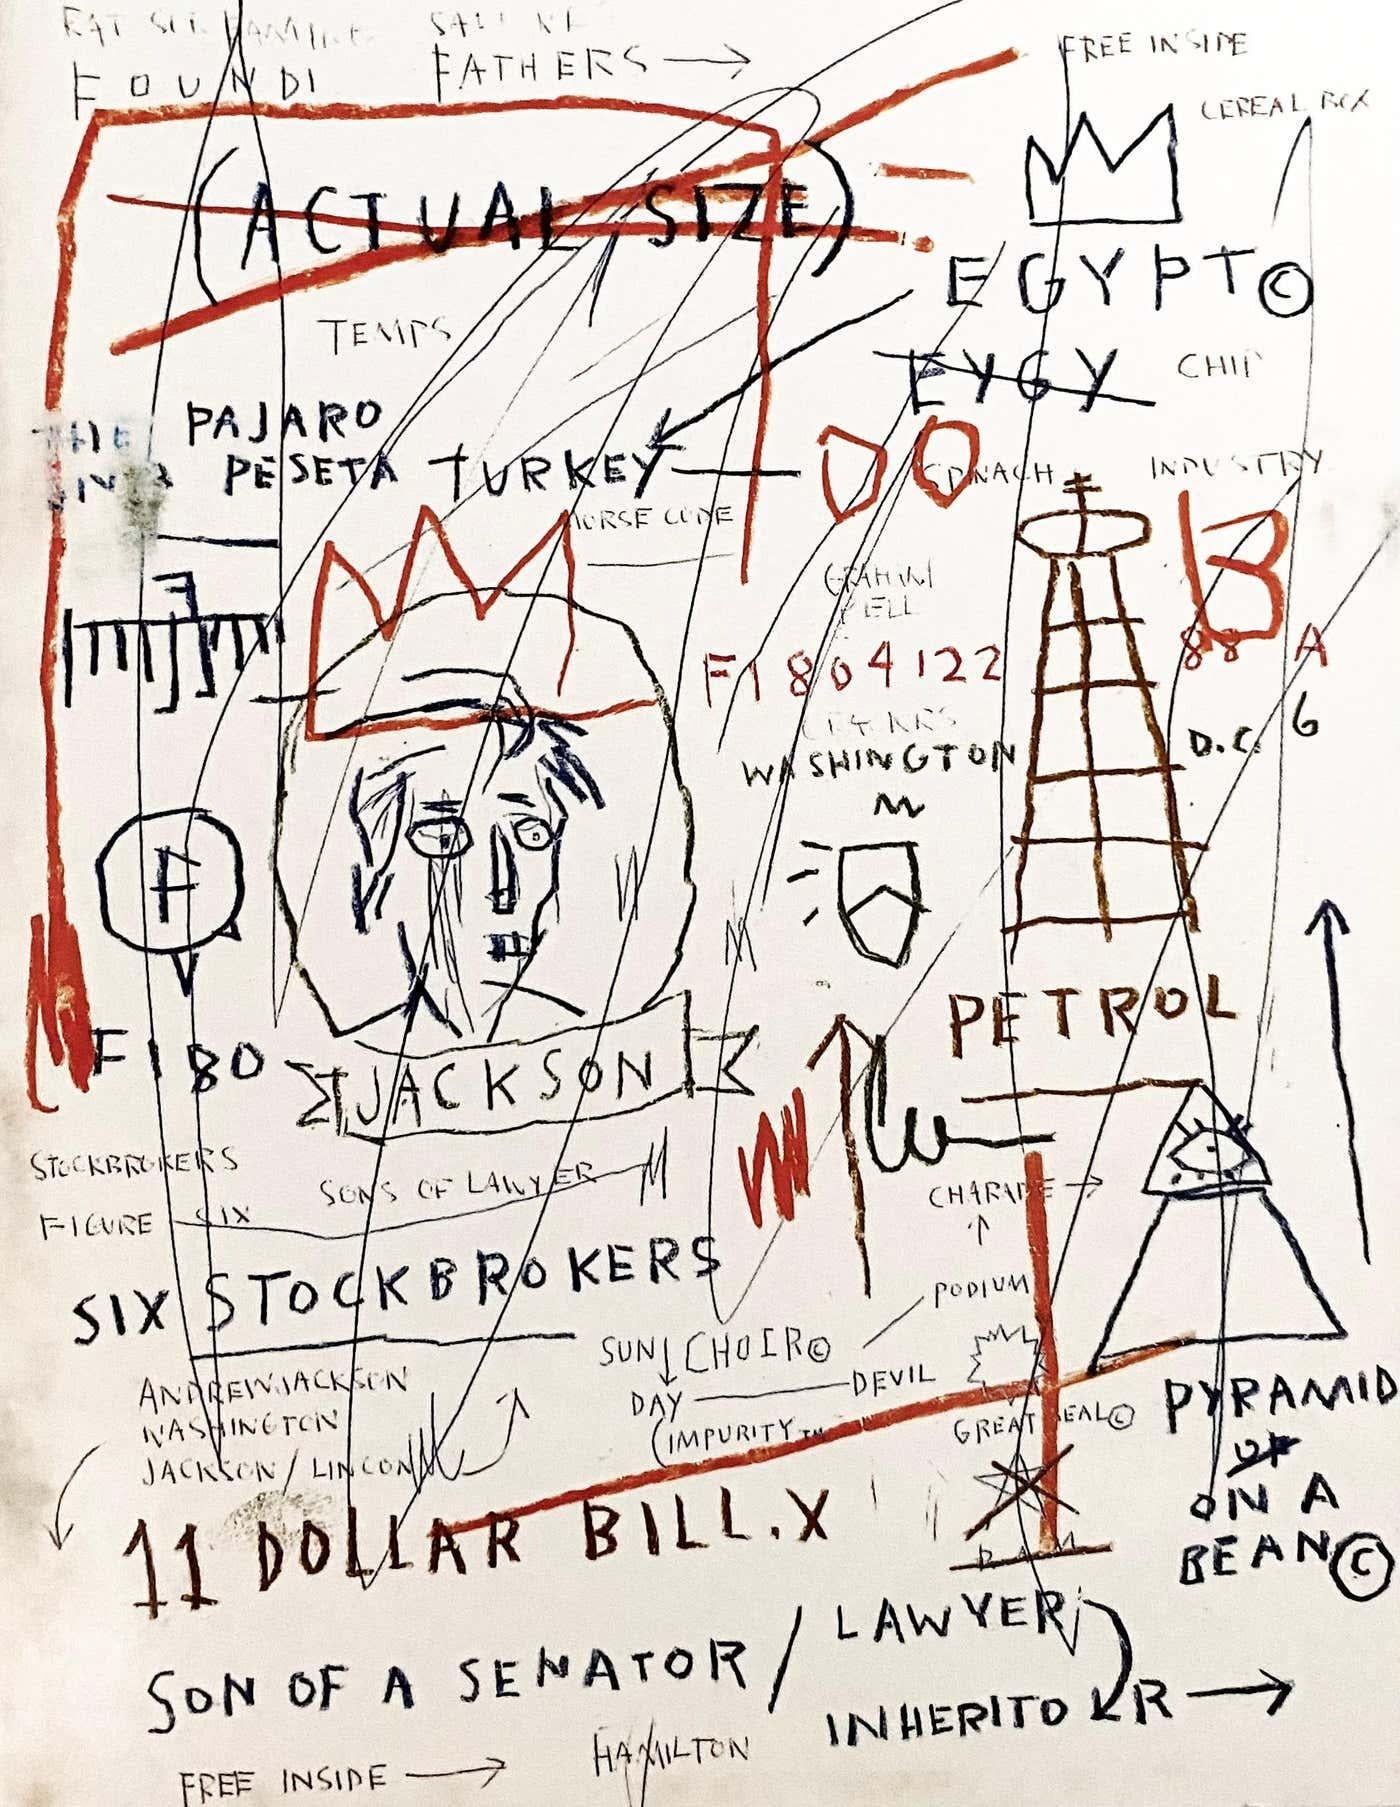 FOUNDI FATHERS
FREE INSIDE
CEREAL BOX
(ACTUAL SIZE)
EGYPT©
EYGY
CHIP
TEMPS
THE PAJARO
PESETA TURKEY
DO
SPINACH
INDUSTRY
MORSE CODE
B
GRAHAM
F1804122
88 A
6
WASHINGTON
D.C.
F
PETROL
F180
JACKSON
STOCKBROKERS
SONS OF LAWYER
FIGURE SIX
CHARADE
SIX STOCKBROKERS
PODIUM
SUN CHOIR©
DAY DEVIL
(IMPURITY™
ANDREW JACKSON
WASHINGTON
JACKSON / LINCON
GREAT SEAL©
PYRAMID
OF
ON A
BEAN©
11 DOLLAR BILL.X
SON OF A SENATOR / LAWYER
INHERITOR
FREE INSIDE
HAMILTON